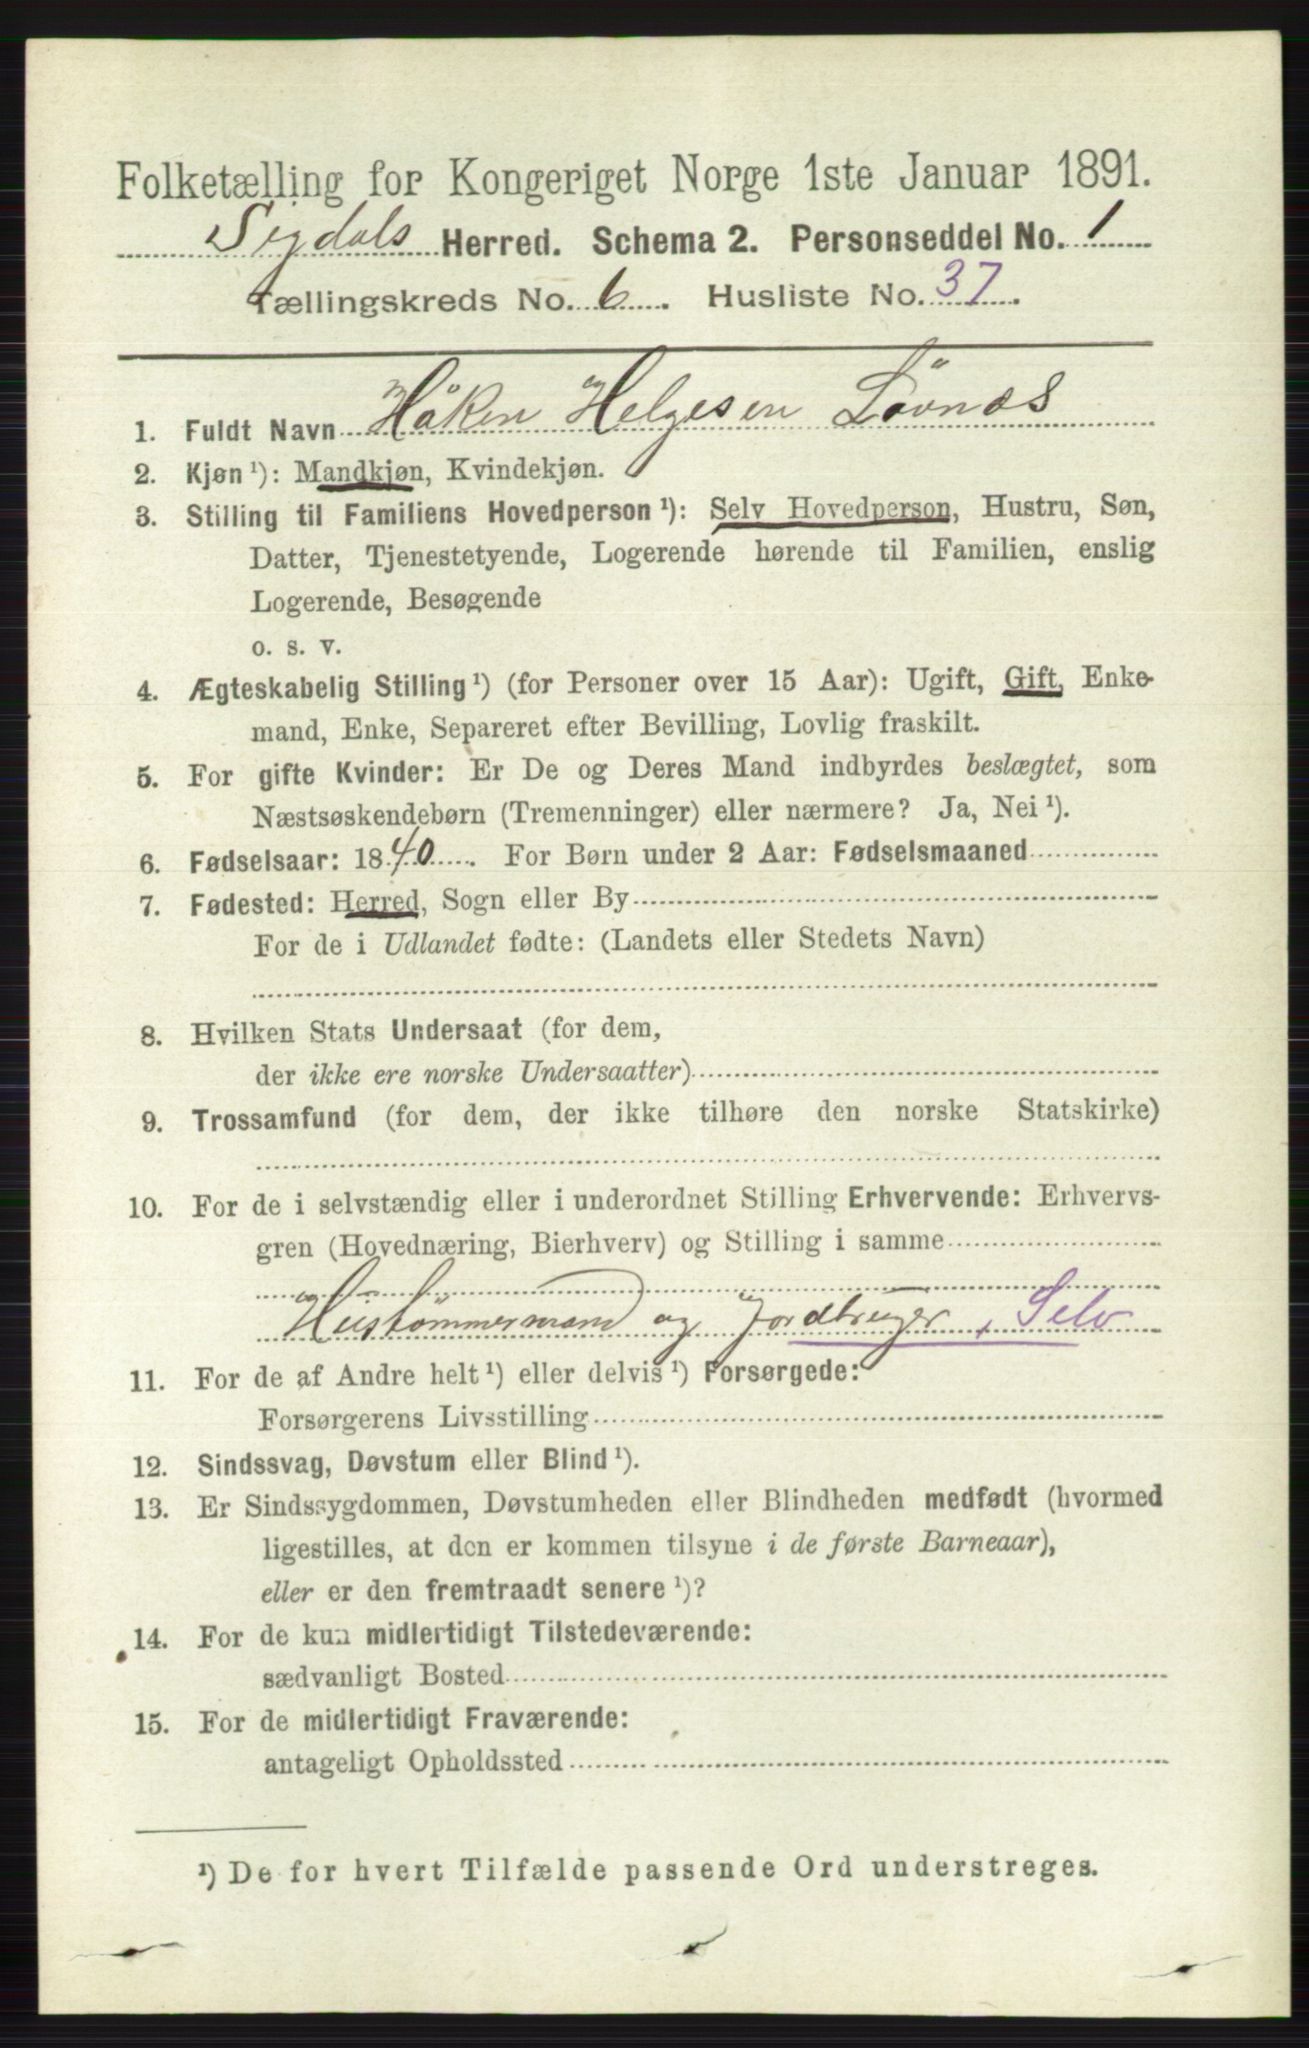 Folketælling for Kongeriget Norge 1ste Januar 1891.
Sigdals Herred. Schema 2. Personseddel No. 1
Tællingskreds No. 6. Husliste No. 37.
1. Fuldt Navn Håken Helgesen Løvnæs
2. Kjøn ¹): Mandkjøn, Kvindekjøn.
3. Stilling til Familiens Hovedperson ¹): Selv Hovedperson, Hustru, Søn,
Datter, Tjenestetyende, Logerende hørende til Familien, enslig
Logerende, Besøgende
o. s. v.
4. Ægteskabelig Stilling ¹) (for Personer over 15 Aar): Ugift, Gift, Enke-
mand, Enke, Separeret efter Bevilling, Lovlig fraskilt.
5. For gifte Kvinder: Er De og Deres Mand indbyrdes beslægtet, som
Næstsøskendebørn (Tremenninger) eller nærmere? Ja, Nei ¹).
6. Fødselsaar: 1840. For Børn under 2 Aar: Fødselsmaaned
7. Fødested: Herred, Sogn eller By
For de i Udlandet fødte: (Landets eller Stedets Navn)
8. Hvilken Stats Undersaat (for dem,
der ikke ere norske Undersaatter)
9. Trossamfund (for dem, der ikke tilhøre den norske Statskirke)
10. For de i selvstændig eller i underordnet Stilling Erhvervende: Erhvervs-
gren (Hovednæring, Bierhverv) og Stilling i samme
Hustømmermand og Jordbruger, Selv
11. For de af Andre helt ¹) eller delvis ¹) Forsørgede:
Forsørgerens Livsstilling
12. Sindssvag, Døvstum eller Blind ¹).
13. Er Sindssygdommen, Døvstumheden eller Blindheden medfødt (hvormed
ligestilles, at den er kommen tilsyne i de første Barneaar),
eller er den fremtraadt senere ¹)?
14. For de kun midlertidigt Tilstedeværende:
sædvanligt Bosted
15. For de midlertidigt Fraværende:
antageligt Opholdssted
¹) De for hvert Tilfælde passende Ord understreges.